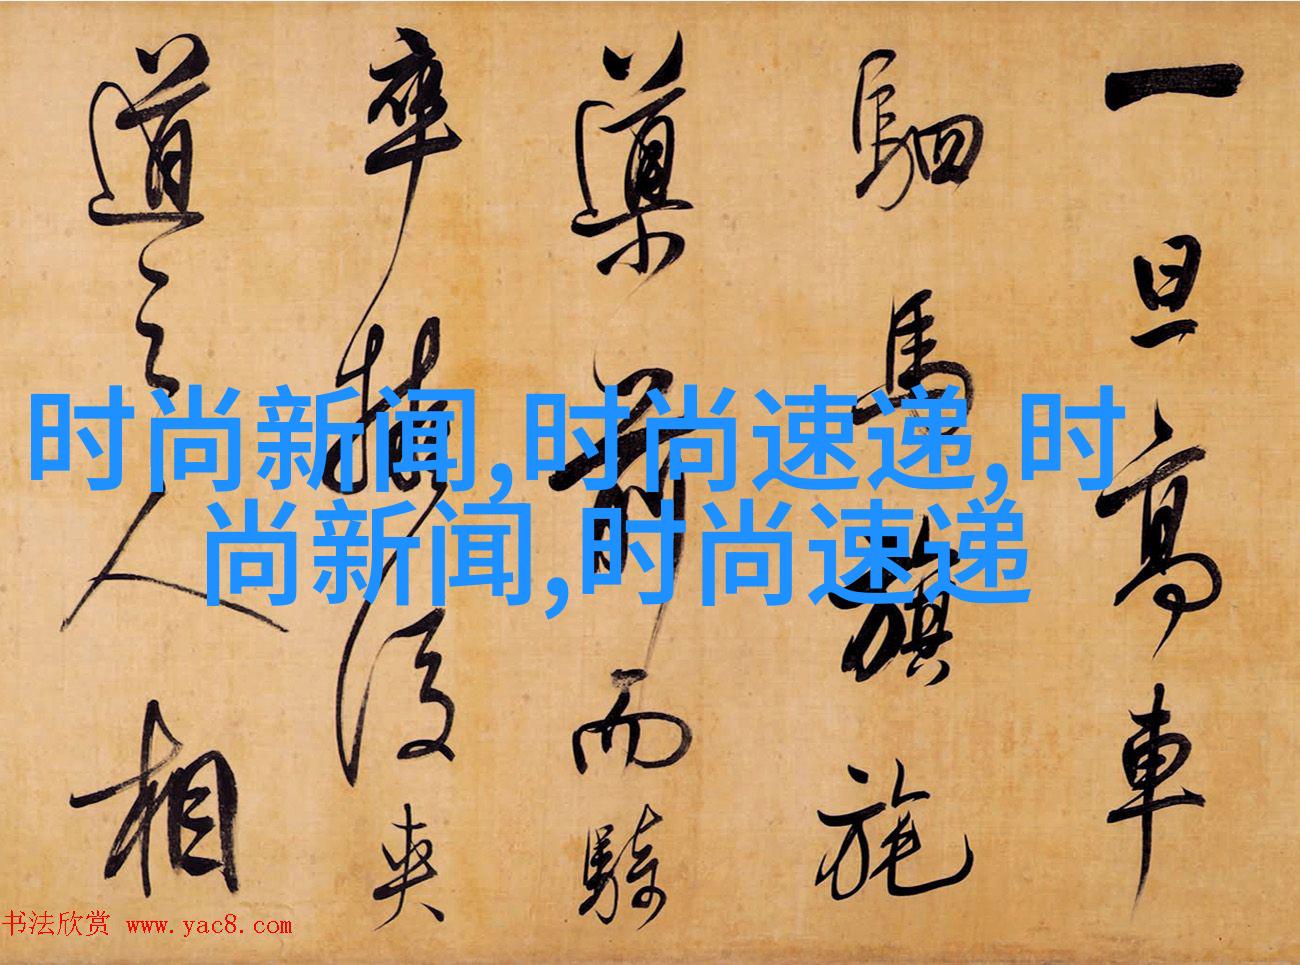 一旦高車
駟馬旗旄
導前而騎
卒擁後夾
道之人相
时尚新闻,时尚速递,时
尚新闻,时尚速递
书法欣赏 www.yac8.com